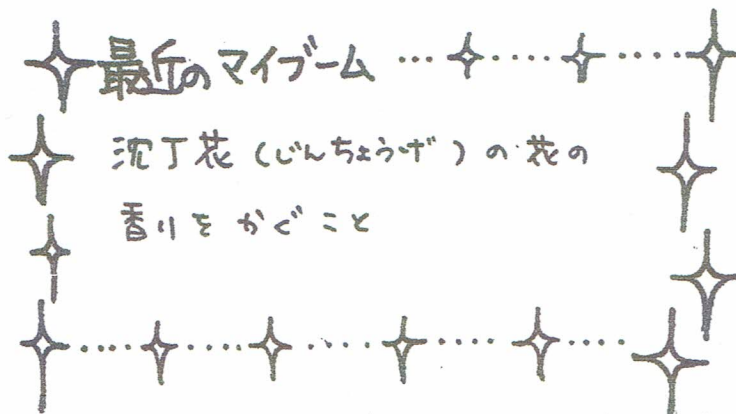 最近のマイブーム
沈丁花（じんちょうげ）の花の
香りをかぐこと